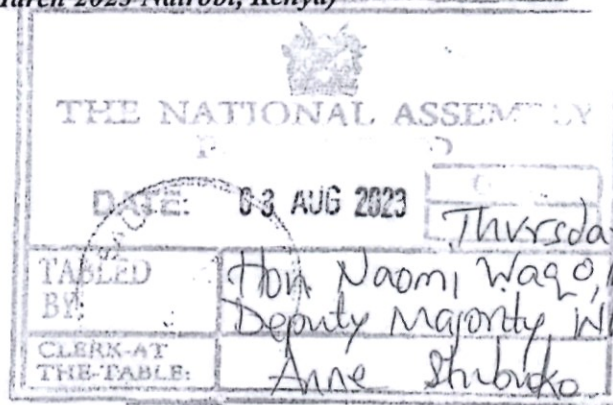 March 2023 Nairobi, Kenya)
THE NATIONAL ASSEMBLY
DATE: 03 AUG 2023
Thursda
TABLED BY: Hon Naomi Waqo,
Deputy Majority Wh
CLERK-AT THE-TABLE: Anne